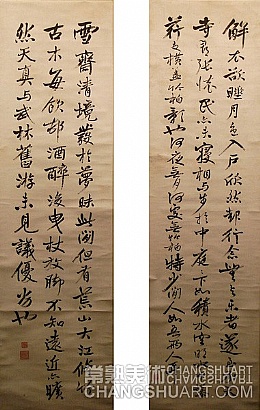 解衣欲睡月色入戶欣然却行念無与樂者遂
寺尋張懷民亦未寢相与步於中庭下如積水空明
荇交橫蓋竹柏影也何夜無月何處無竹柏特少閒人如吾兩人
雪齋清境發於夢昧此間但有荒山大江脩竹
古木每飲邨酒醉後曳杖放脚不知遠近亦曠
然天真與武林舊游未見議優劣也
常熟美術
CHANGSHUART.COM